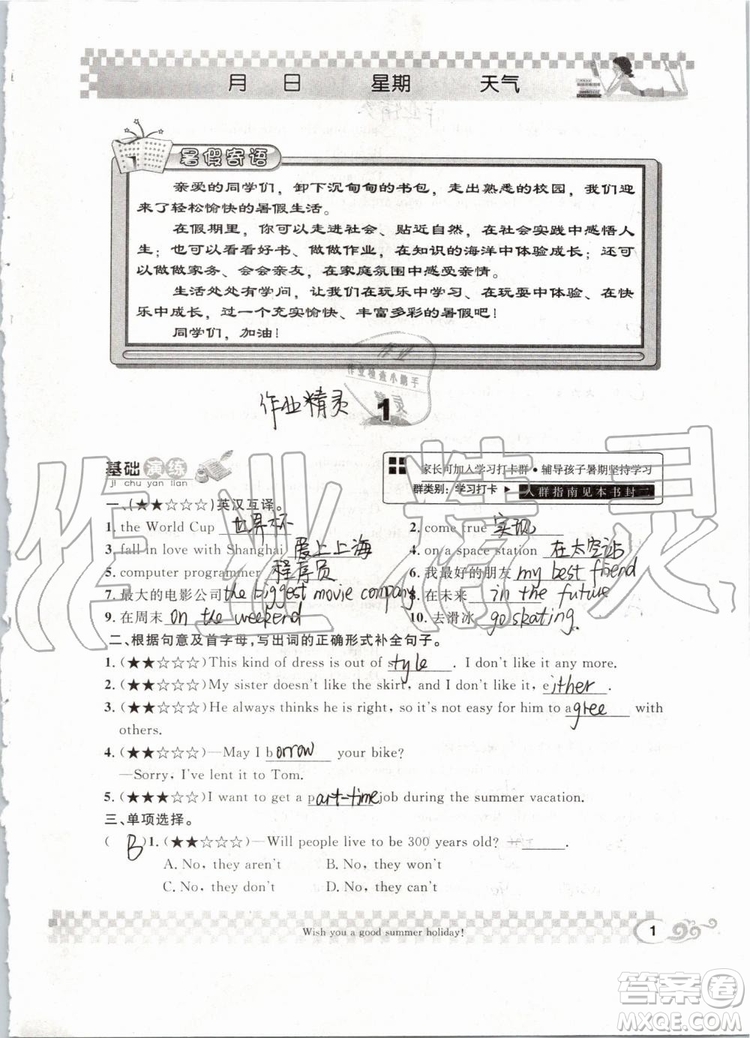 月 日 星期 天气
暑假寄语
亲爱的同学们，卸下沉甸甸的书包，走出熟悉的校园，我们迎
来了轻松愉快的暑假生活。
在假期里，你可以走进社会、贴近自然，在社会实践中感悟人
生；也可以看看好书、做做作业，在知识的海洋中体验成长；还可
以做做家务、会会亲友，在家庭氛围中感受亲情。
生活处处有学问，让我们在玩乐中学习、在玩耍中体验、在快
乐中成长，过一个充实愉快、丰富多彩的暑假吧！
同学们，加油！
作业
作业检查小助手
精灵
作业精灵
1
基础演练
ji chu yan lian
家长可加入学习打卡群·辅导孩子暑期坚持学习
群类别：学习打卡 入群指南见本书封二
一、(★★☆☆☆)英汉互译。
1. the World Cup 世界杯 2. come true 实现
3. fall in love with Shanghai 爱上上海 4. on a space station 在太空站
5. computer programmer 程序员 6. 我最好的朋友 my best friend
7. 最大的电影公司 the biggest movie company 8. 在未来 in the future
9. 在周末 on the weekend 10. 去滑冰 go skating
二、根据句意及首字母，写出词的正确形式补全句子。
1. (★★☆☆☆)This kind of dress is out of style. I don't like it any more.
2. (★★☆☆☆)My sister doesn't like the skirt, and I don't like it, either.
3. (★★☆☆☆)He always thinks he is right, so it's not easy for him to agree with
others.
4. (★★☆☆☆)—May I borrow your bike?
—Sorry, I've lent it to Tom.
5. (★★☆☆☆)I want to get a part-time job during the summer vacation.
三、单项选择。
( B )1. (★★☆☆☆)—Will people live to be 300 years old?
A. No, they aren't B. No, they won't
C. No, they don't D. No, they can't
Wish you a good summer holiday!
1
作业精灵
答案圈
MXQE.COM